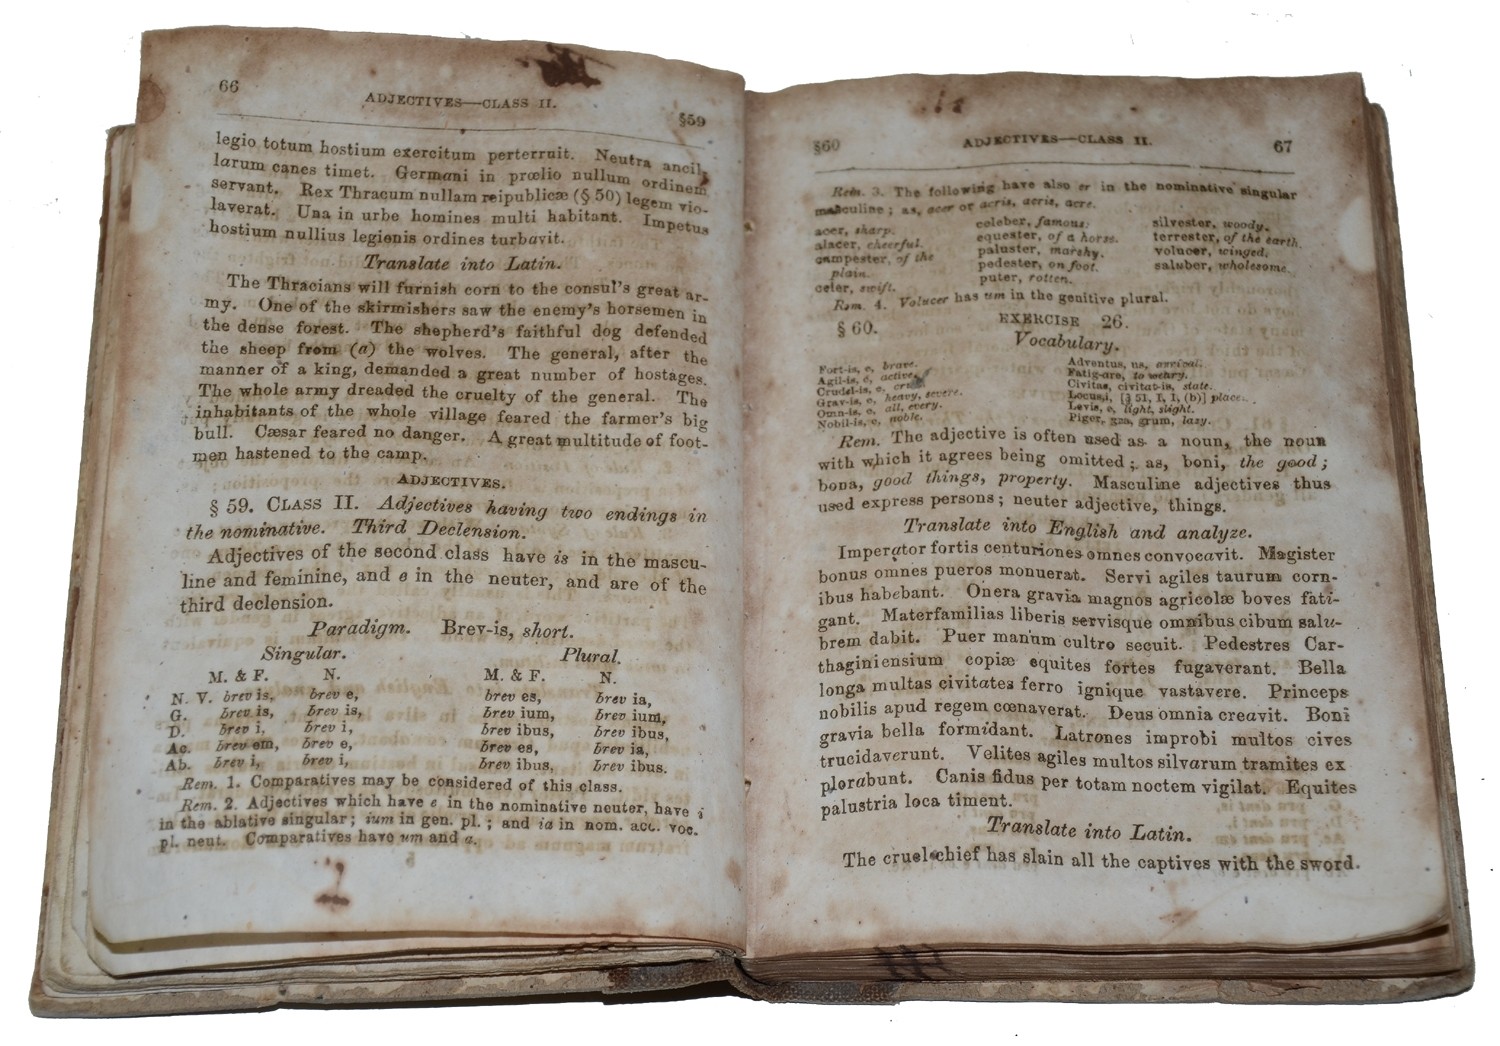 66
ADJECTIVES—CLASS II.
§59
legio totum hostium exercitum perterruit. Neutra ancil-
larum canes timet. Germani in prœlio nullum ordinem
servant. Rex Thracum nullam reipublicæ (§ 50) legem vio-
laverat. Una in urbe homines multi habitant. Impetus
hostium nullius legionis ordines turbavit.
Translate into Latin.
The Thracians will furnish corn to the consul's great ar-
my. One of the skirmishers saw the enemy's horsemen in
the dense forest. The shepherd's faithful dog defended
the sheep from (a) the wolves. The general, after the
manner of a king, demanded a great number of hostages.
The whole army dreaded the cruelty of the general. The
inhabitants of the whole village feared the farmer's big
bull. Cæsar feared no danger. A great multitude of foot-
men hastened to the camp.
ADJECTIVES.
§ 59. CLASS II. Adjectives having two endings in
the nominative. Third Declension.
Adjectives of the second class have is in the mascu-
line and feminine, and e in the neuter, and are of the
third declension.
Paradigm. Brev-is, short.
Singular. Plural.
M. & F. N. M. & F. N.
N. V. brev is, brev e, brev es, brev ia,
G. brev is, brev is, brev ium, brev ium,
D. brev i, brev i, brev ibus, brev ibus,
Ac. brev em, brev e, brev es, brev ia,
Ab. brev i, brev i, brev ibus, brev ibus.
Rem. 1. Comparatives may be considered of this class.
Rem. 2. Adjectives which have e in the nominative neuter, have i
in the ablative singular; ium in gen. pl.; and ia in nom. acc. voc.
pl. neut. Comparatives have um and a.
§60
ADJECTIVES—CLASS II.
67
Rem. 3. The following have also er in the nominative singular
masculine; as, acer or acris, acris, acre.
acer, sharp. celeber, famous. silvester, woody.
alacer, cheerful. equester, of a horse. terrester, of the earth.
campester, of the paluster, marshy. volucer, winged.
plain. pedester, on foot. saluber, wholesome.
celer, swift. puter, rotten.
Rem. 4. Volucer has um in the genitive plural.
§ 60. EXERCISE 26.
Vocabulary.
Fort-is, e, brave. Adventus, us, arrival.
Agil-is, e, active. Fatig-are, to weary.
Crudel-is, e, cruel. Civitas, civitat-is, state.
Grav-is, e, heavy, severe. Locus, i, [§ 51, I, 1, (b)] place.
Omn-is, e, all, every. Levis, e, light, slight.
Nobil-is, e, noble. Piger, gra, grum, lazy.
Rem. The adjective is often used as a noun, the noun
with which it agrees being omitted; as, boni, the good;
bona, good things, property. Masculine adjectives thus
used express persons; neuter adjective, things.
Translate into English and analyze.
Imperator fortis centuriones omnes convocavit. Magister
bonus omnes pueros monuerat. Servi agiles taurum corn-
ibus habebant. Onera gravia magnos agricolæ boves fati-
gant. Materfamilias liberis servisque omnibus cibum salu-
brem dabit. Puer manum cultro secuit. Pedestres Car-
thaginiensium copiæ equites fortes fugaverant. Bella
longa multas civitates ferro ignique vastavere. Princeps
nobilis apud regem cœnaverat. Deus omnia creavit. Boni
gravia bella formidant. Latrones improbi multos cives
trucidaverunt. Velites agiles multos silvarum tramites ex
plorabunt. Canis fidus per totam noctem vigilat. Equites
palustria loca timent.
Translate into Latin.
The cruel chief has slain all the captives with the sword.